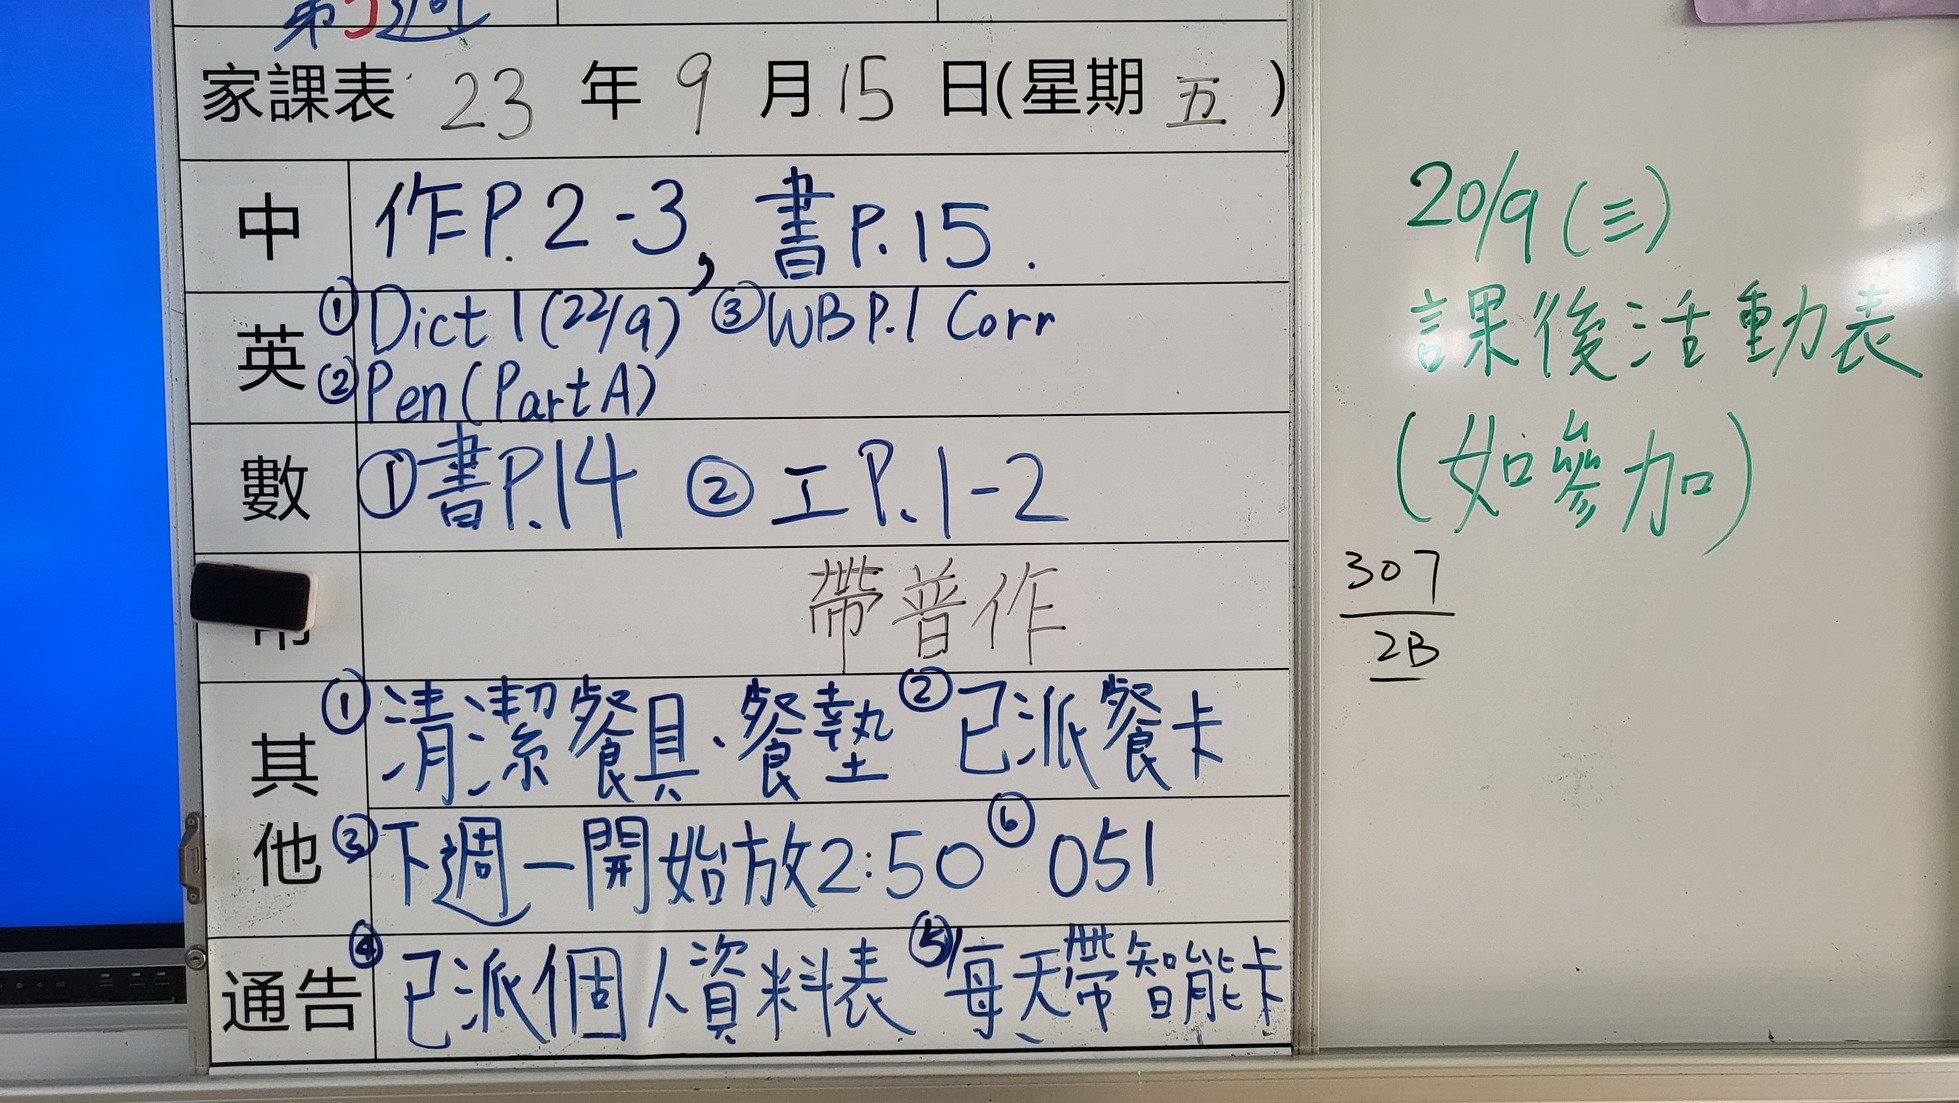 第3週
家課表 23 年 9 月 15 日(星期 五 )
中 作P.2-3, 書P.15.
英 ①Dict 1 (22/9) ③WB P.1 Corr
②Pen (Part A)
數 ①書P.14 ②工P.1-2
帶普作
其他 ①清潔餐具、餐墊 ②已派餐卡
③下週一開始放2:50 ⑥051
通告 ④已派個人資料表 ⑤每天帶智能卡
20/9 (三)
課後活動表
(如參加)
307
2B